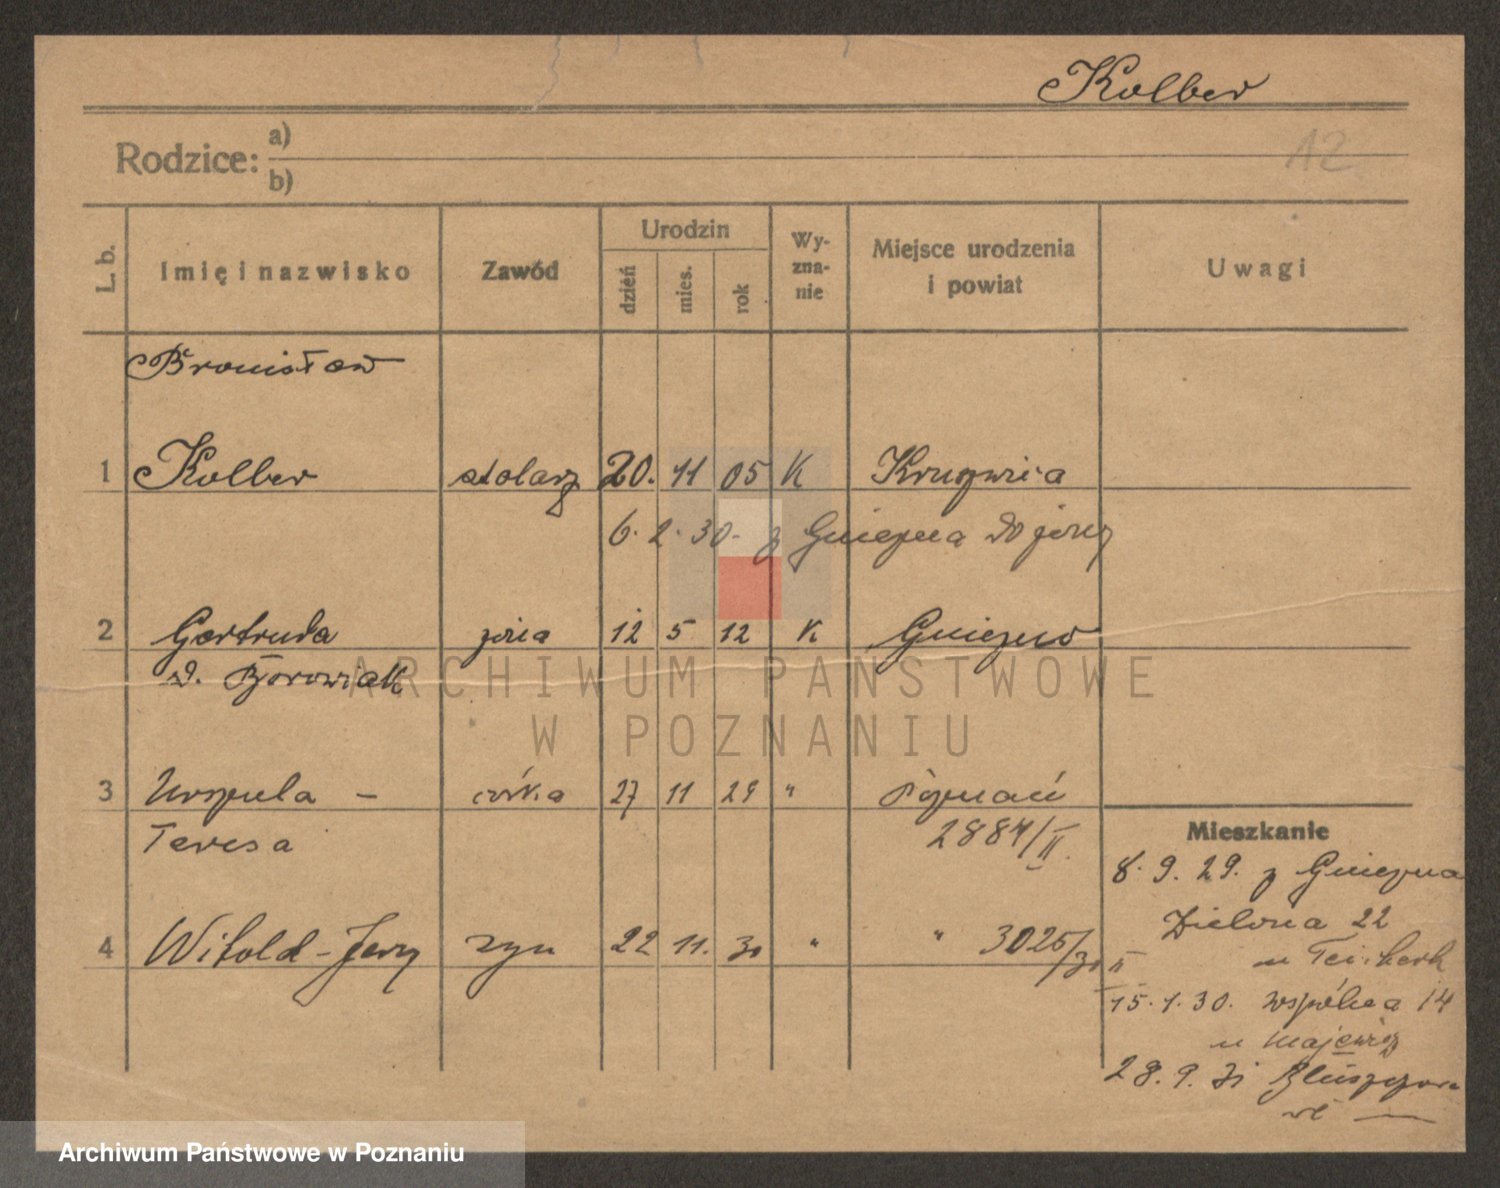 Kolber
12
Rodzice: a)
b)
L. b. Imię i nazwisko Zawód Urodzin dzień mies. rok Wy-zna-nie Miejsce urodzenia i powiat Uwagi
Bronisław
1 Kolber stolarz 20. 11 05 K Kruszwica
6. 2. 30. z Gniezna do żony
2 Gertruda żona 12 5 12 K Gniezno
d. Borowiak
3 Urszula – córka 27 11 29 " Poznań
Teresa 2884/II.
4 Witold-Jerzy syn 22 11. 30 " " 3025/30 II
Mieszkanie
8. 9. 29. z Gniezna
Zielona 22
u
15. 1. 30. Wspólna 14
u
28. 9. 31
ARCHIWUM PAŃSTWOWE
W POZNANIU
Archiwum Państwowe w Poznaniu